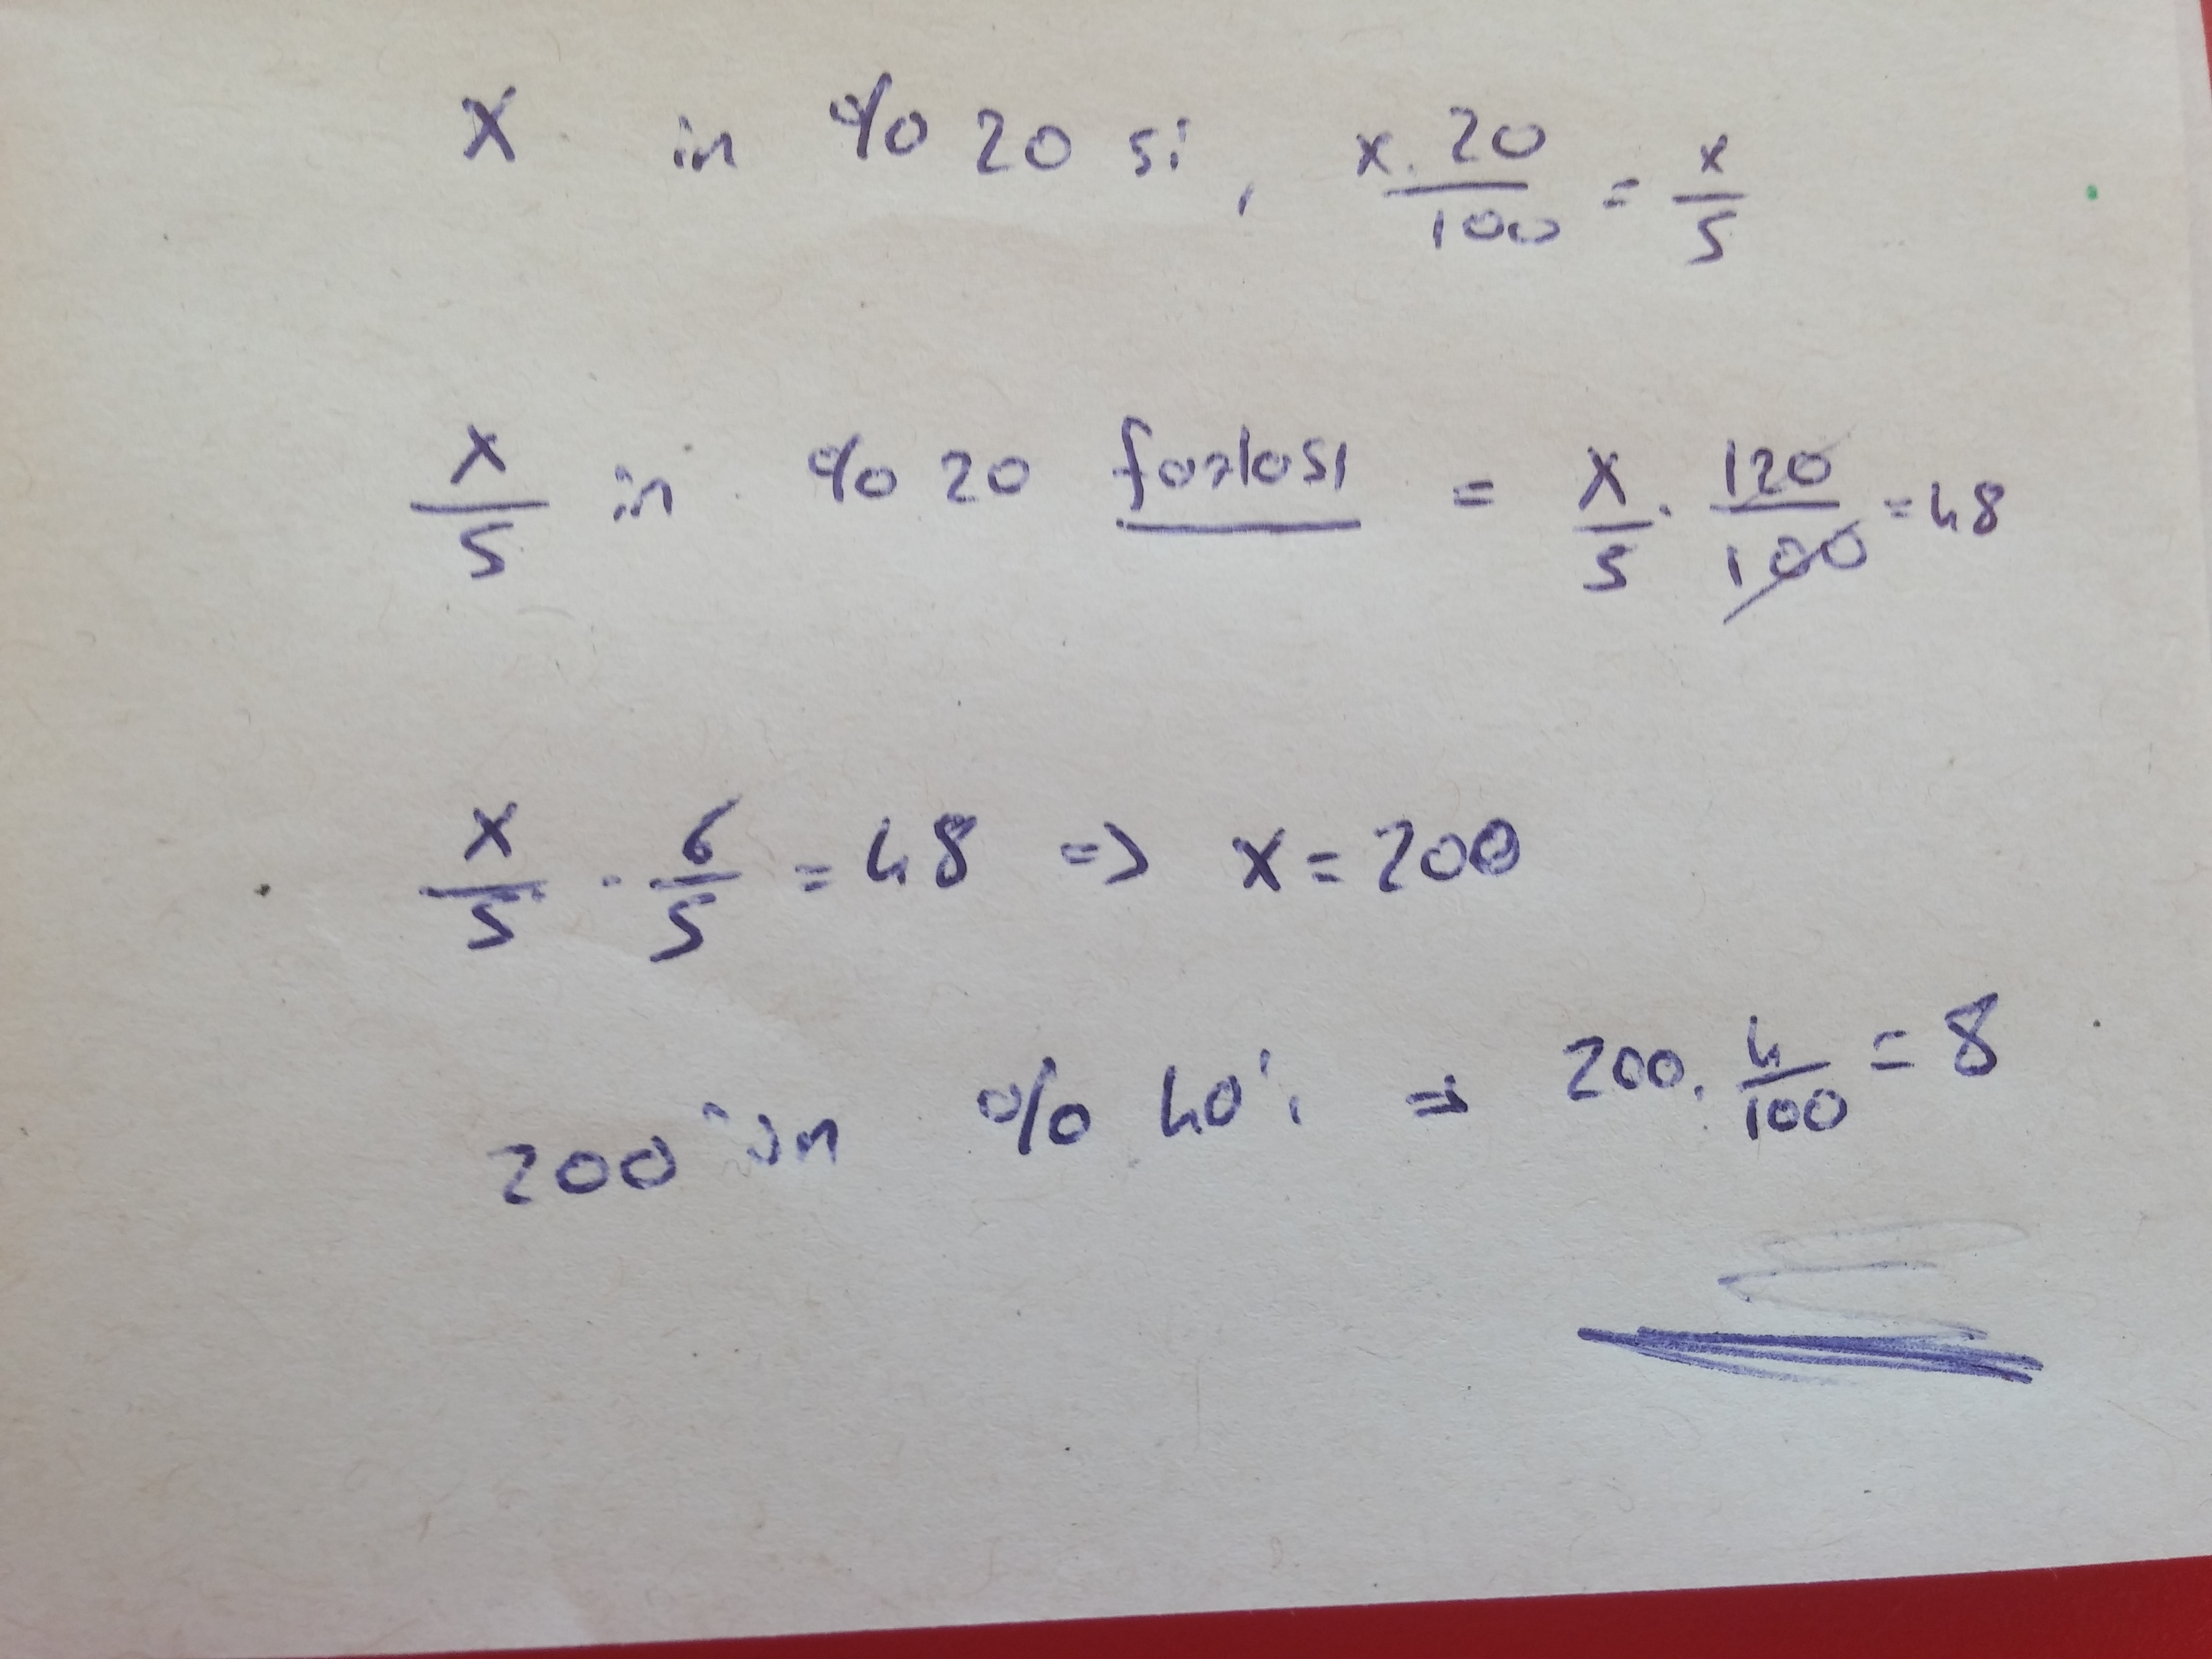 x in %20 si, x.20/100 = x/5
x/5 in %20 fazlası = x/5 . 120/100 = 48
x/5 . 6/5 = 48 => x = 200
200'ün %40'ı => 200 . 4/100 = 8